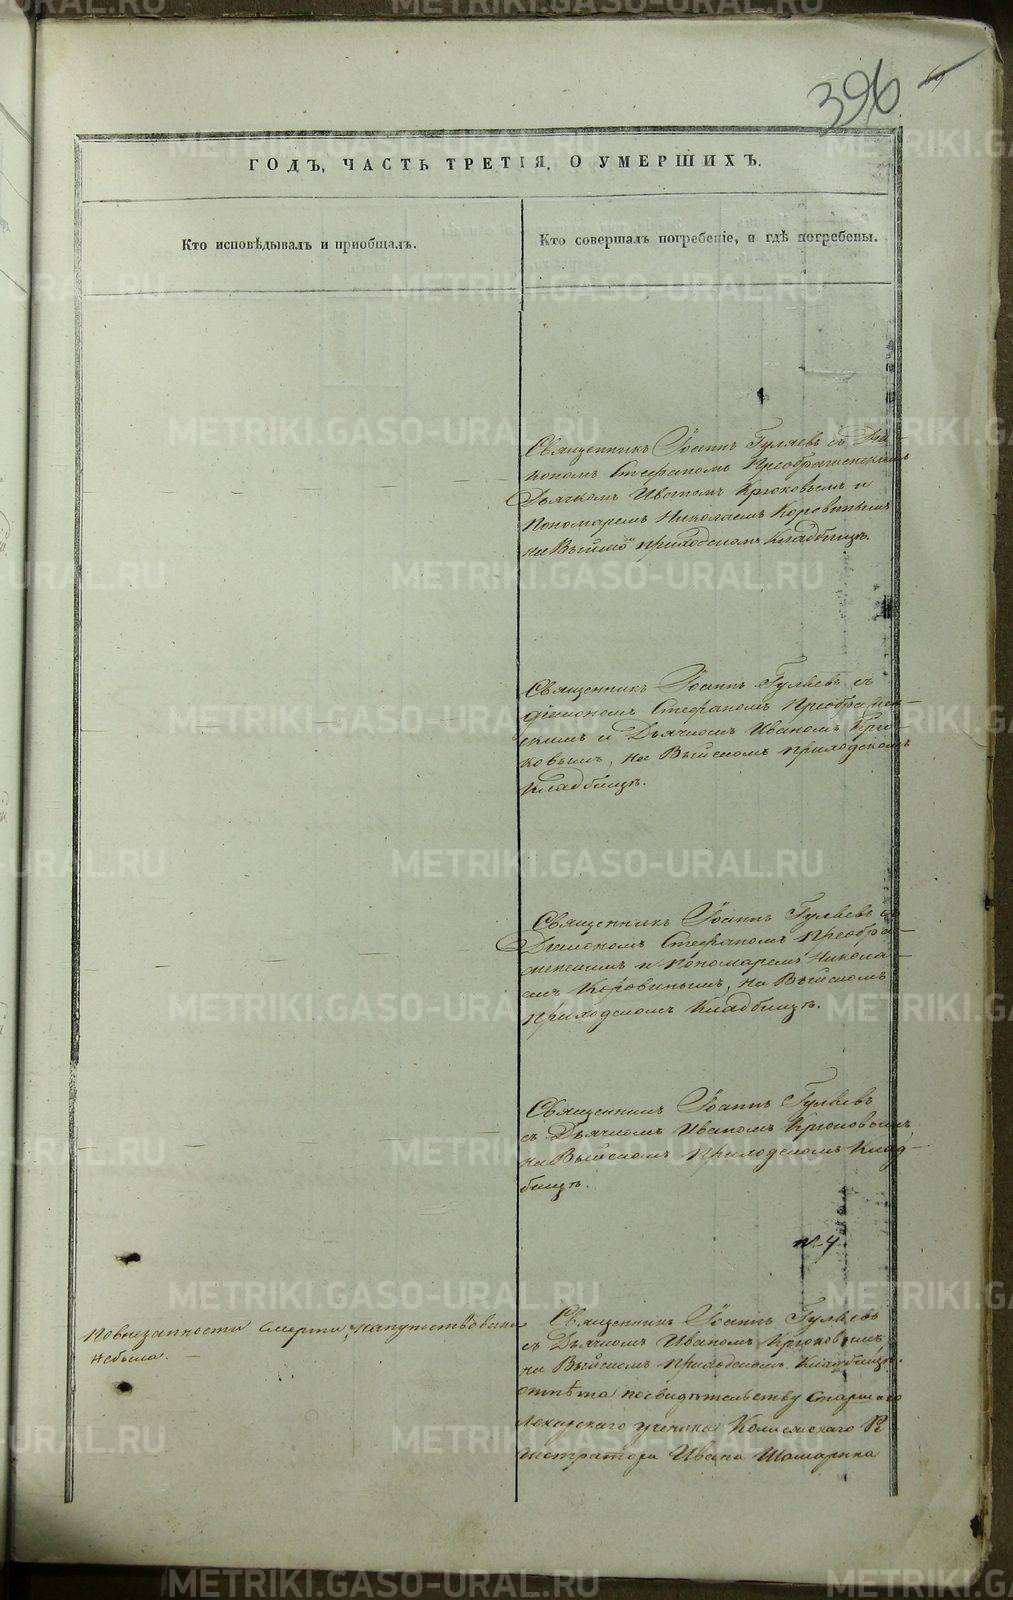 396
ГОДЪ, ЧАСТЬ ТРЕТІЯ, О УМЕРШИХЪ.
Кто исповѣдывалъ и приобщалъ.
Кто совершалъ погребеніе, и гдѣ погребены.
Священникъ Іоаннъ Гуляевъ съ Діа-
кономъ Стефаномъ Преображенскимъ
Дьячкомъ Иваномъ Крюковымъ и
Пономаремъ Николаемъ Коровинымъ
на приходскомъ Кладбищѣ.
Священникъ Іоаннъ Гуляевъ съ
діакономъ Стефаномъ Преображен-
скимъ и Дьячкомъ Иваномъ Крю-
ковымъ, на Выйскомъ приходскомъ
Кладбищѣ.
Священникъ Іоаннъ Гуляевъ съ
Діакономъ Стефаномъ Преобра-
женскимъ и Пономаремъ Никола-
емъ Коровинымъ, на Выйскомъ
Приходскомъ Кладбищѣ.
Священникъ Іоаннъ Гуляевъ
съ Дьячкомъ Иваномъ Крюковымъ
на Выйскомъ Приходскомъ Клад-
бищѣ.
Повнезапности смерти, напутствована
небыла.
Священникъ Іоаннъ Гуляевъ
съ Дьячкомъ Иваномъ Крюковымъ
на Выйскомъ приходскомъ Кладбищѣ.
отпѣта посвидѣтельству Старшаго
Лекарскаго ученика
Ивана Шамарина
METRIKI.GASO-URAL.RU